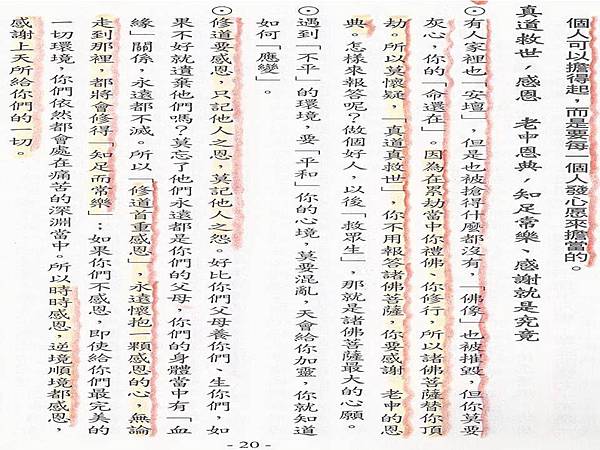 個人可以擔得起，而是要每一個人發心愿來擔當的。
真道救世，感恩　老中恩典，知足常樂、感謝就是究竟
⊙有人家裡也「安壇」，但是也被搶得什麼都沒有，「佛像」也被摧毀，但你莫要
灰心，你的「命還在」。因為在累劫當中你禮佛，你修行，所以諸佛菩薩替你頂
劫。所以莫懷疑，「真道真救世」，你不用報答諸佛菩薩，你要感謝　老中的恩
典。怎樣來報答呢？做個好人，以後「救眾生」，那就是諸佛菩薩最大的心願。
⊙遇到「不平」的環境，要「平和」你的心境，莫要混亂，天會給你加靈，你就知道
如何「應變」。
⊙修道要感恩，只記他人之恩，莫記他人之怨。好比你們父母養你們、生你們，如
果不好就遺棄他們嗎？莫忘了他們永遠都是你們的父母，你們的身體當中有「血
緣」關係，永遠都不滅。所以「修道首重感恩」，永遠懷抱一顆感恩的心，無論
走到那裡，都將會修得「知足而常樂」；如果你們不感恩，即使給你們最完美的
一切環境，你們依然都會處在痛苦的深淵當中。所以時時感恩，逆境順境都感恩，
感謝上天所給你們的一切。
- 20 -